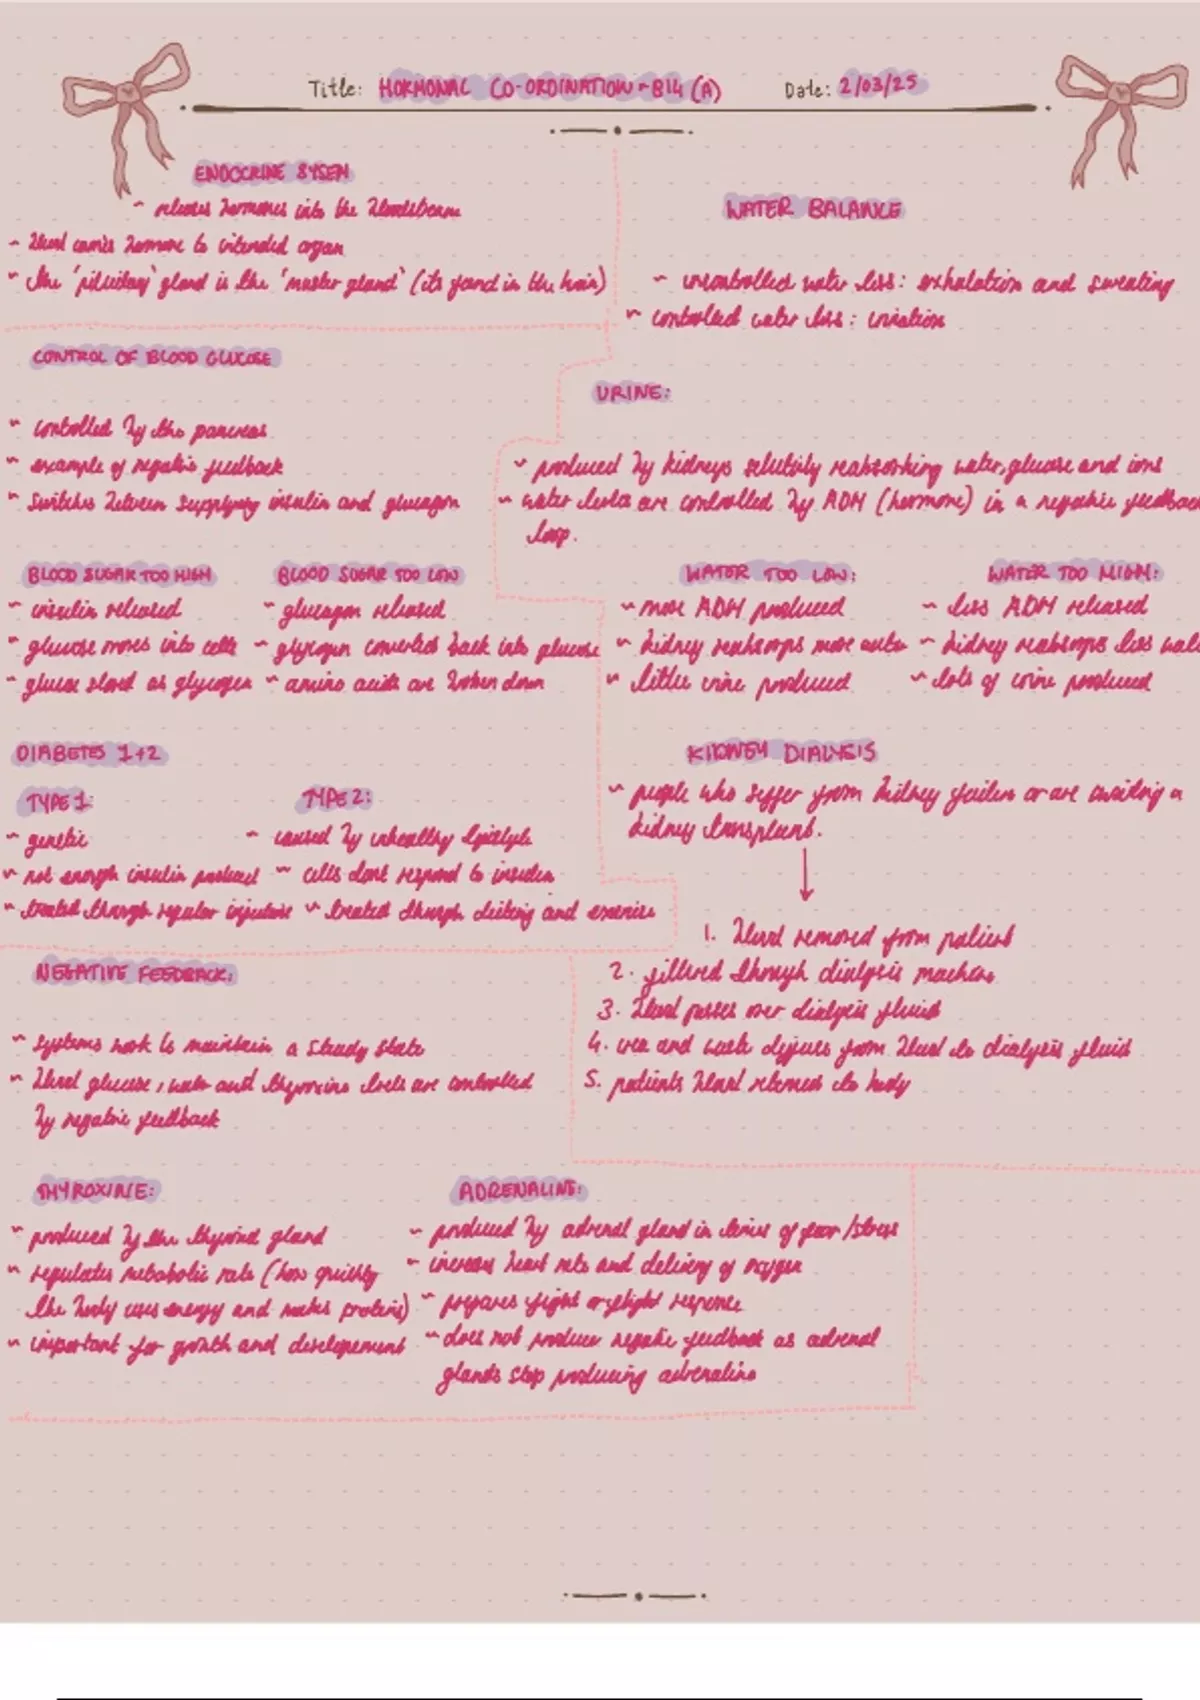 Title: HORMONAL CO-ORDINATION - B14 (A) Date: 2/03/25
ENDOCRINE SYSEM
~ releases hormones into the bloodstream
~ blood carries hormone to intended organ
~ the 'pituitary' gland is the 'master gland' (its found in the brain)
CONTROL OF BLOOD GLUCOSE
~ controlled by the pancreas
~ example of negative feedback
~ switches between supplying insulin and glucagon
BLOOD SUGAR TOO HIGH
~ insulin released
~ glucose moves into cells
~ glucose stored as glycogen
BLOOD SUGAR TOO LOW
~ glucagon released
~ glycogen converted back into glucose
~ amino acids are broken down
DIABETES 1+2
TYPE 1:
~ genetic
~ not enough insulin produced
~ treated through regular injections
TYPE 2:
~ caused by unhealthy lifestyle
~ cells dont respond to insulin
~ treated through dieting and exercise
NEGATIVE FEEDBACK:
~ systems work to maintain a steady state
~ blood glucose, water and thyroxine levels are controlled
by negative feedback
THYROXINE:
~ produced by the thyroid gland
~ regulates metabolic rate (how quickly
the body uses energy and makes proteins)
~ important for growth and development
ADRENALINE:
~ produced by adrenal gland in times of fear/stress
~ increases heart rate and delivery of oxygen
~ prepares fight or flight response
~ does not produce negative feedback as adrenal
glands stop producing adrenaline
WATER BALANCE
~ uncontrolled water loss: exhalation and sweating
~ controlled water loss: urination
URINE:
~ produced by kidneys selectivly reabsorbing water, glucose and ions
~ water levels are controlled by ADH (hormone) in a negative feedbac
loop.
WATER TOO LOW:
~ more ADH produced
~ kidney reabsorps more water
~ little urine produced
WATER TOO HIGH:
~ less ADH released
~ kidney reabsorps less wate
~ lots of urine produced
KIDNEY DIALYSIS
~ people who suffer from kidney failure or are awaiting a
kidney transplant.
1. blood removed from patient
2. filtered through dialysis machine
3. blood passes over dialysis fluid
4. urea and waste diffuses from blood to dialysis fluid
5. patients blood returned to body